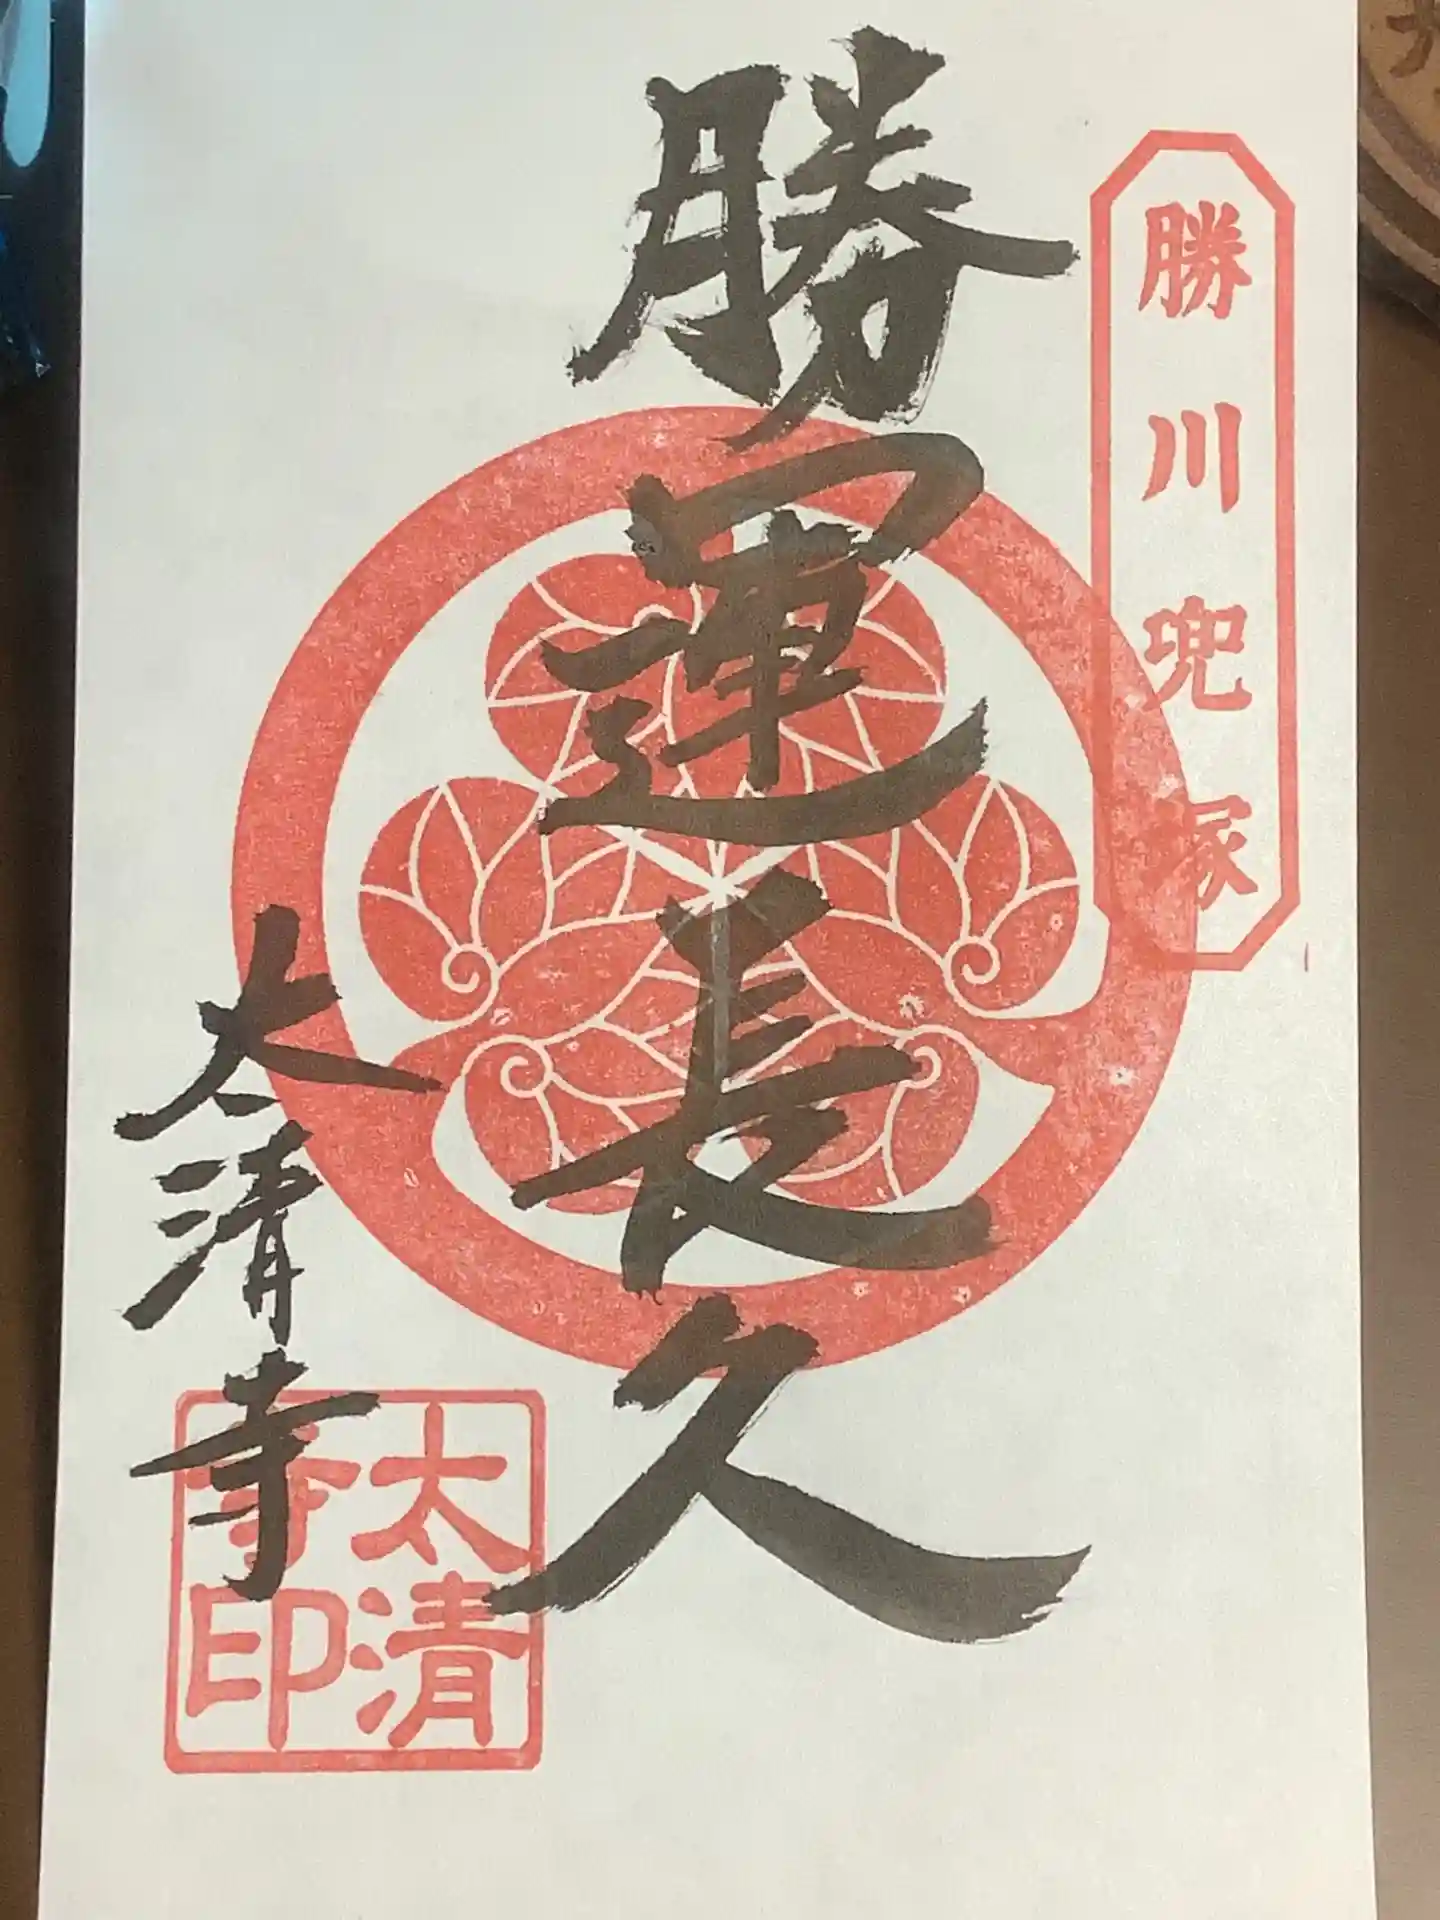 勝川兜塚
勝運長久
太清寺
太清
寺印